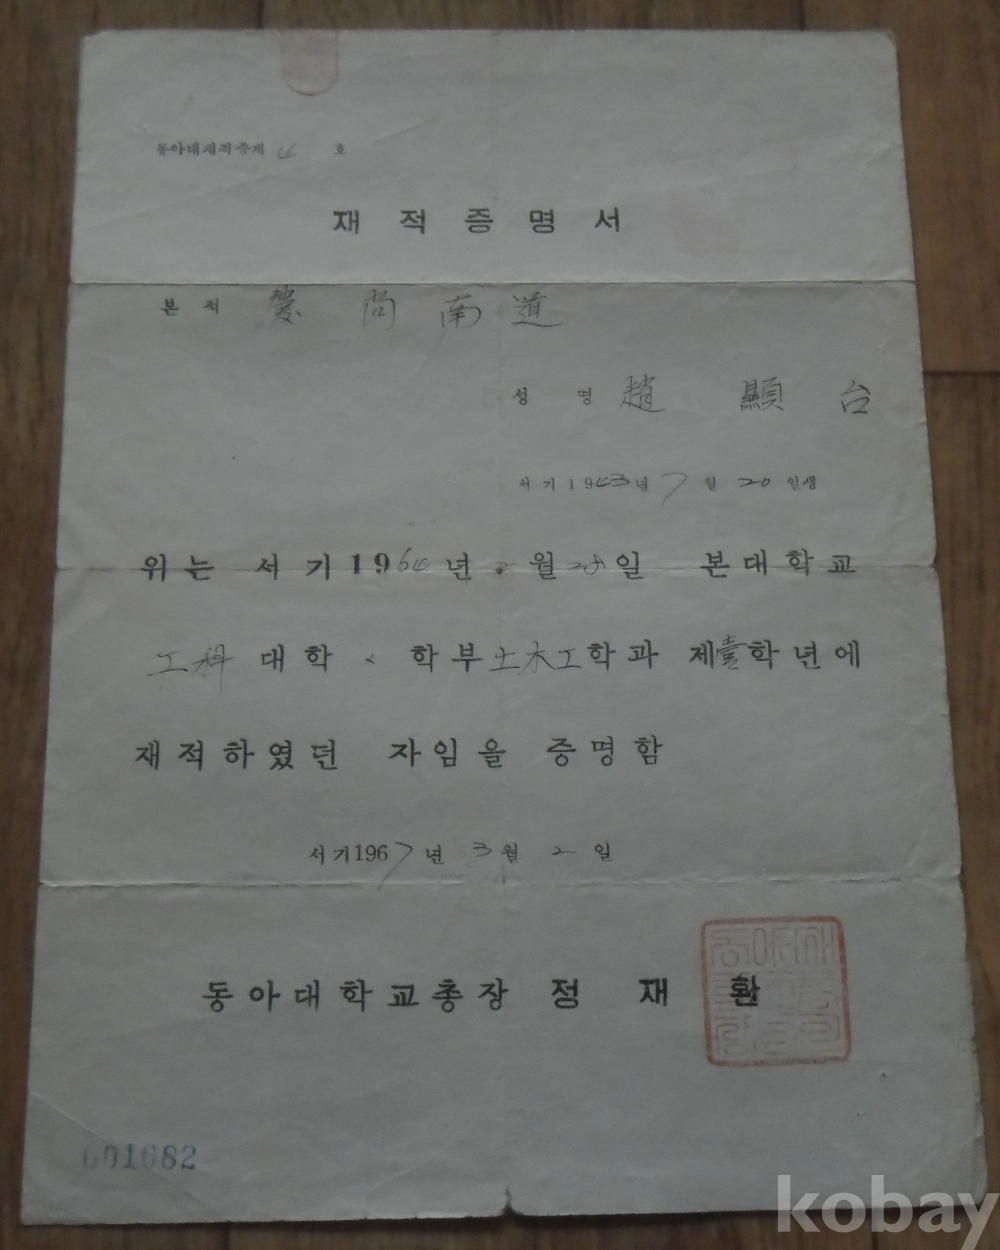 동아대재적증제 4 호
재 적 증 명 서
본 적 慶 尚 南 道
성 명 趙 顯 台
서 기 1943년 7 월 20 일생
위 는 서 기 1964 년 월 28 일 본 대 학 교
工科 대 학 학 부 土木工 학 과 제 壹 학 년 에
재 적 하 였 던 자 임 을 증 명 함
서 기 1967 년 3 월 2 일
동 아 대 학 교 총 장 정 재 환
001682
kobay